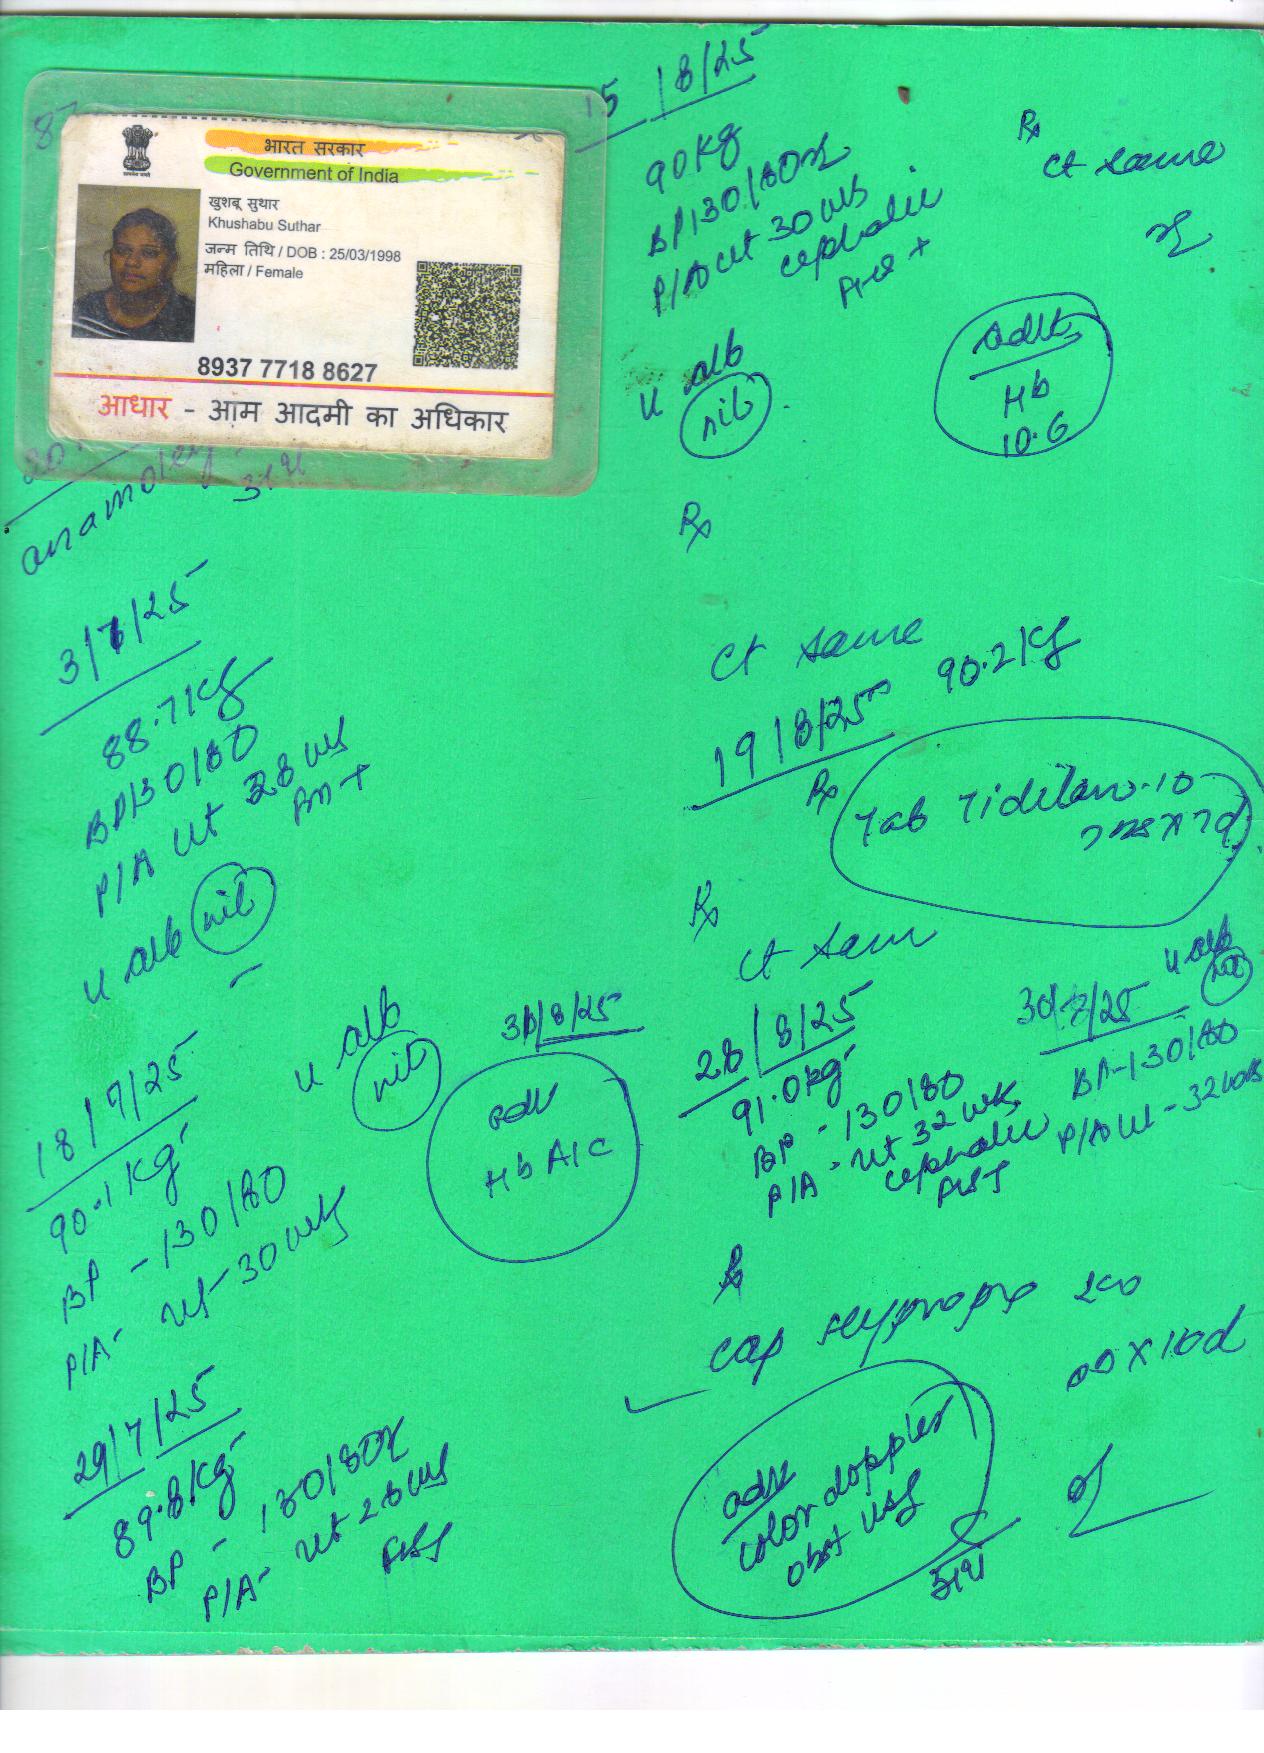 भारत सरकार
Government of India
खुशबू सुथार
Khushabu Suthar
जन्म तिथि / DOB : 25/03/1998
महिला / Female
8937 7718 8627
आधार - आम आदमी का अधिकार
anamoley
3/7/25
88.7 kg
BP 130/80
P/A ut 28 wks
FM +
u alb nil
18/7/25
90.1 kg
BP - 130/80
P/A - ut - 30 wks
u alb
nil
29/7/25
89.8 kg
BP - 130/80
P/A - ut 28 wks
FHS
8/25
adv
HbA1C
15/8/25
90 kg
BP 130/80
P/A ut 30 wks
cephalic
FHS +
u alb
nil
Rx
ct same
adv
Hb
10.6
Rx
ct same
19/8/25
90.2 kg
Rx
Tab Tidilan-10
x 7d
Rx
ct same
28/8/25
91.0 kg
BP - 130/80
P/A - ut 32 wks
cephalic
FHS
30/8/25
u alb
nil
BP - 130/80
P/A ut - 32 wks
Rx
cap 200
OD x 10d
adv
color doppler
obst USG